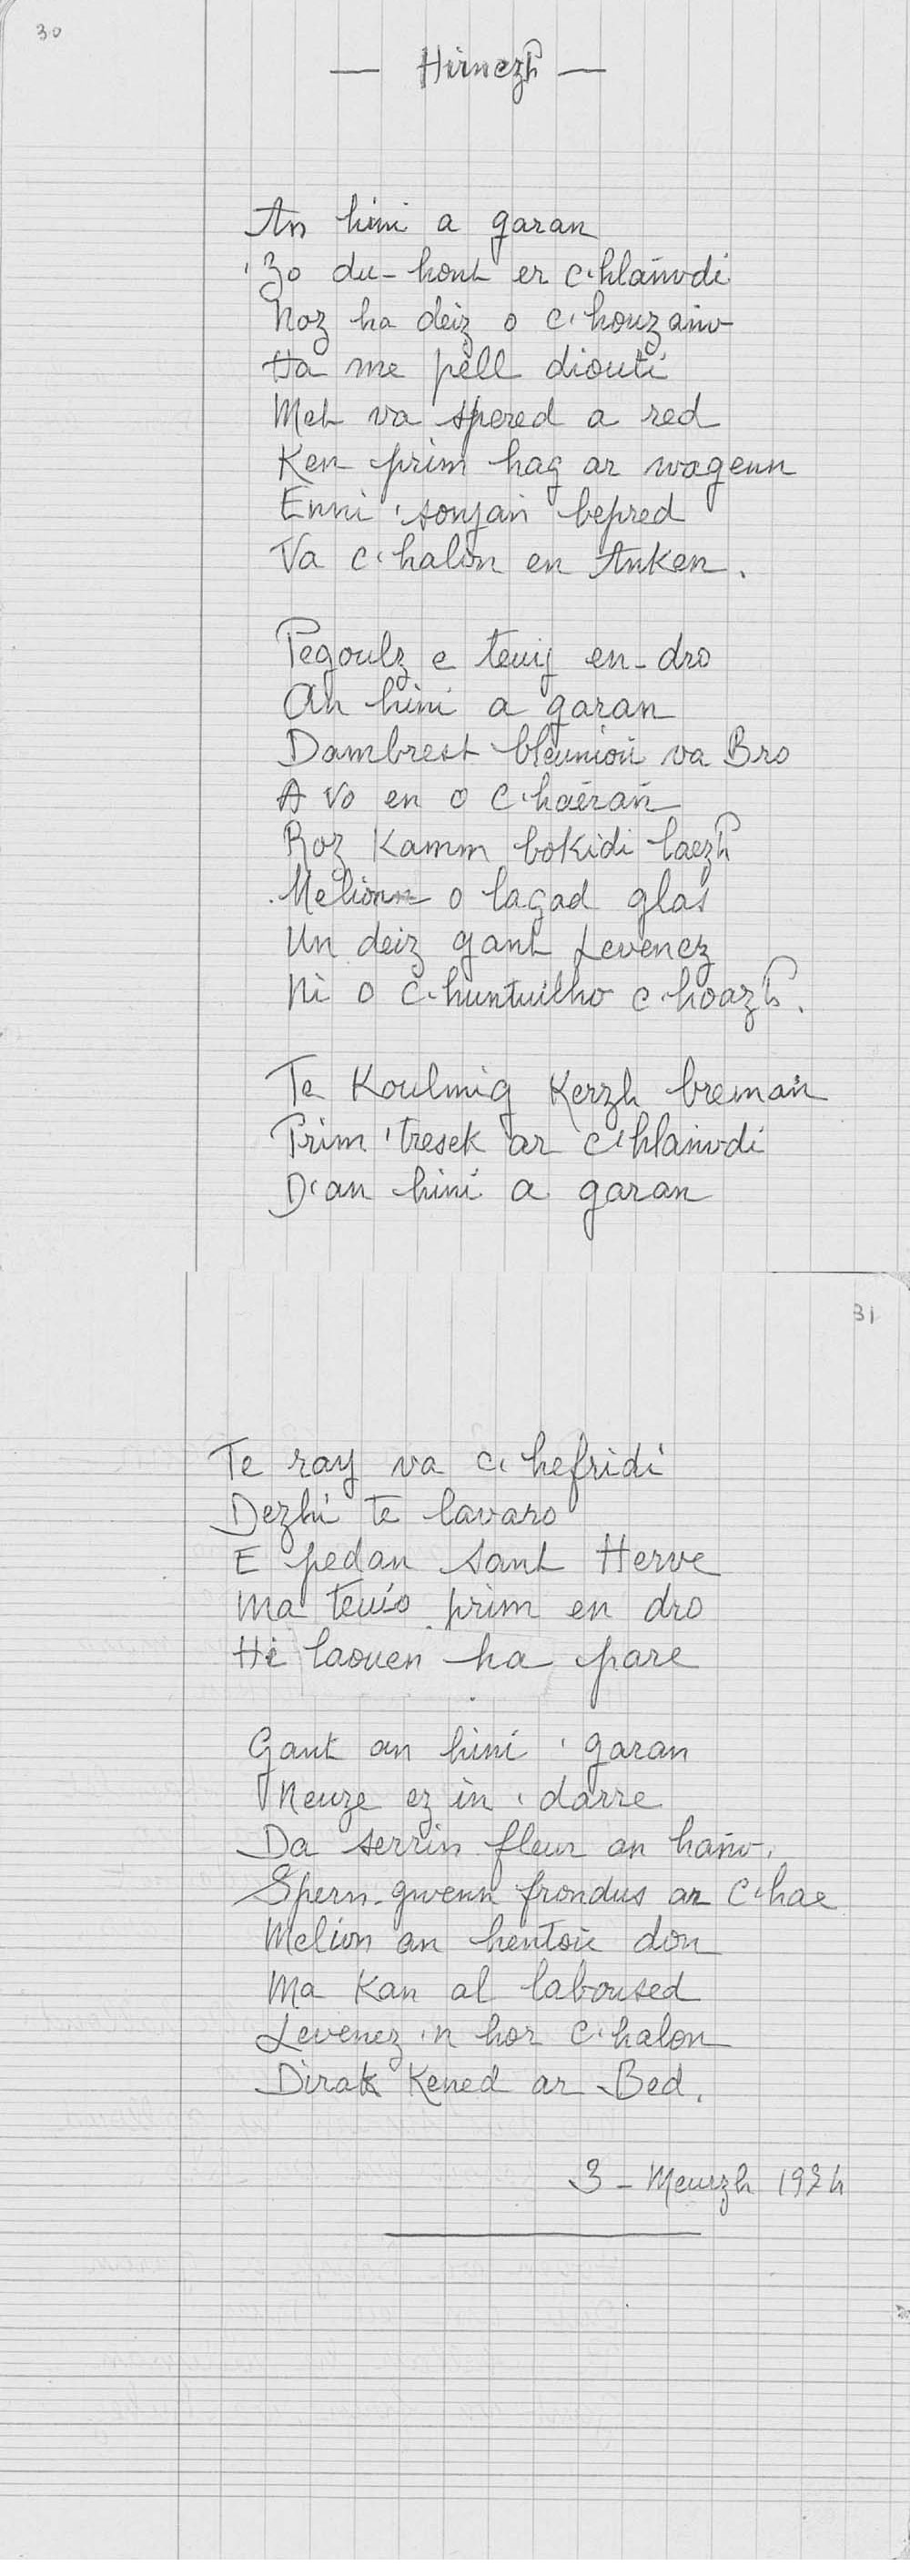 30
— Hirnezh —
An hini a garan
'Zo du-hont er c'hlañvdi
Noz ha deiz o c'houzañv
Ha me pell diouti
Met va spered a red
Ken prim hag ar wagenn
Enni 'sonjan bepred
Va c'halon en Anken.
Pegoulz e teuy en-dro
An hini a garan
Dambrest bleuniou va Bro
A vo en o c'haerañ
Roz Kamm bokidi laezh
Melion o lagad glas
Un deiz gant Levenez
Ni o c'huntuilho c'hoazh.
Te Koulmig Kerzh breman
Prim 'tresek ar c'hlañvdi
D'an hini a garan
31
Te ray va c'hefridi
Dezhi te lavaro
E pedan sant Herve
Ma teuio prim en dro
Hi laouen ha pare
Gant an hini 'garan
Neuze ez in 'darre
Da serrin fleur an hañv.
Spern-gwenn frondus ar c'hae
Melion an hentou don
Ma Kan al laboused
Levenez 'n hor c'halon
Dirak Kened ar Bed.
3 - Meurzh